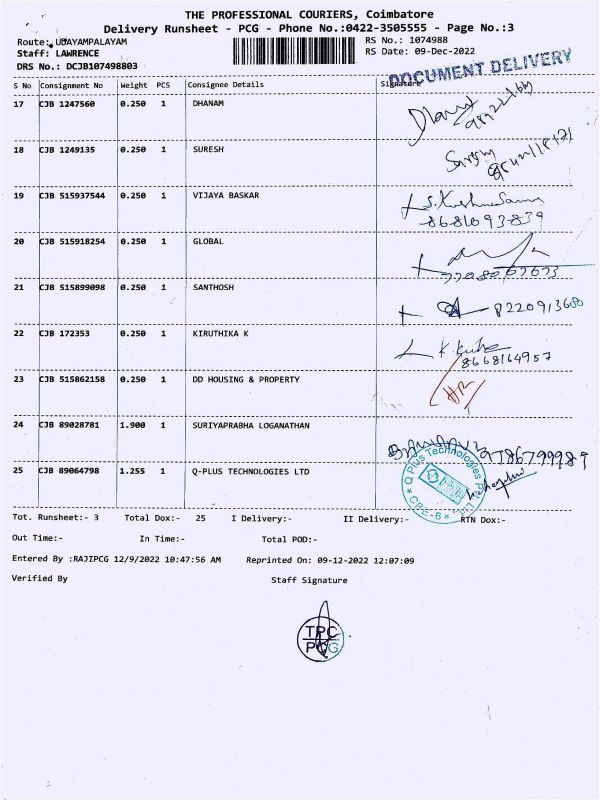 THE PROFESSIONAL COURIERS, Coimbatore
Delivery Runsheet - PCG - Phone No.:0422-3505555 - Page No.:3
Route: UDAYAMPALAYAM RS No.: 1074988
Staff: LAWRENCE RS Date: 09-Dec-2022
DRS No.: DCJB107498803
DOCUMENT DELIVERY
S No Consignment No Weight PCS Consignee Details Signature
17 CJB 1247560 0.250 1 DHANAM
18 CJB 1249135 0.250 1 SURESH
19 CJB 515937544 0.250 1 VIJAYA BASKAR
8681093839
20 CJB 515918254 0.250 1 GLOBAL
21 CJB 515899098 0.250 1 SANTHOSH
8220913680
22 CJB 172353 0.250 1 KIRUTHIKA K
8668164957
23 CJB 515862158 0.250 1 DD HOUSING & PROPERTY
24 CJB 89028781 1.900 1 SURIYAPRABHA LOGANATHAN
9786799989
25 CJB 89064798 1.255 1 Q-PLUS TECHNOLOGIES LTD
Q Plus Technologies Pvt Ltd
CBE-6
Tot. Runsheet:- 3 Total Dox:- 25 I Delivery:- II Delivery:- RTN Dox:-
Out Time:- In Time:- Total POD:-
Entered By :RAJIPCG 12/9/2022 10:47:56 AM Reprinted On: 09-12-2022 12:07:09
Verified By Staff Signature
TPC
PCG